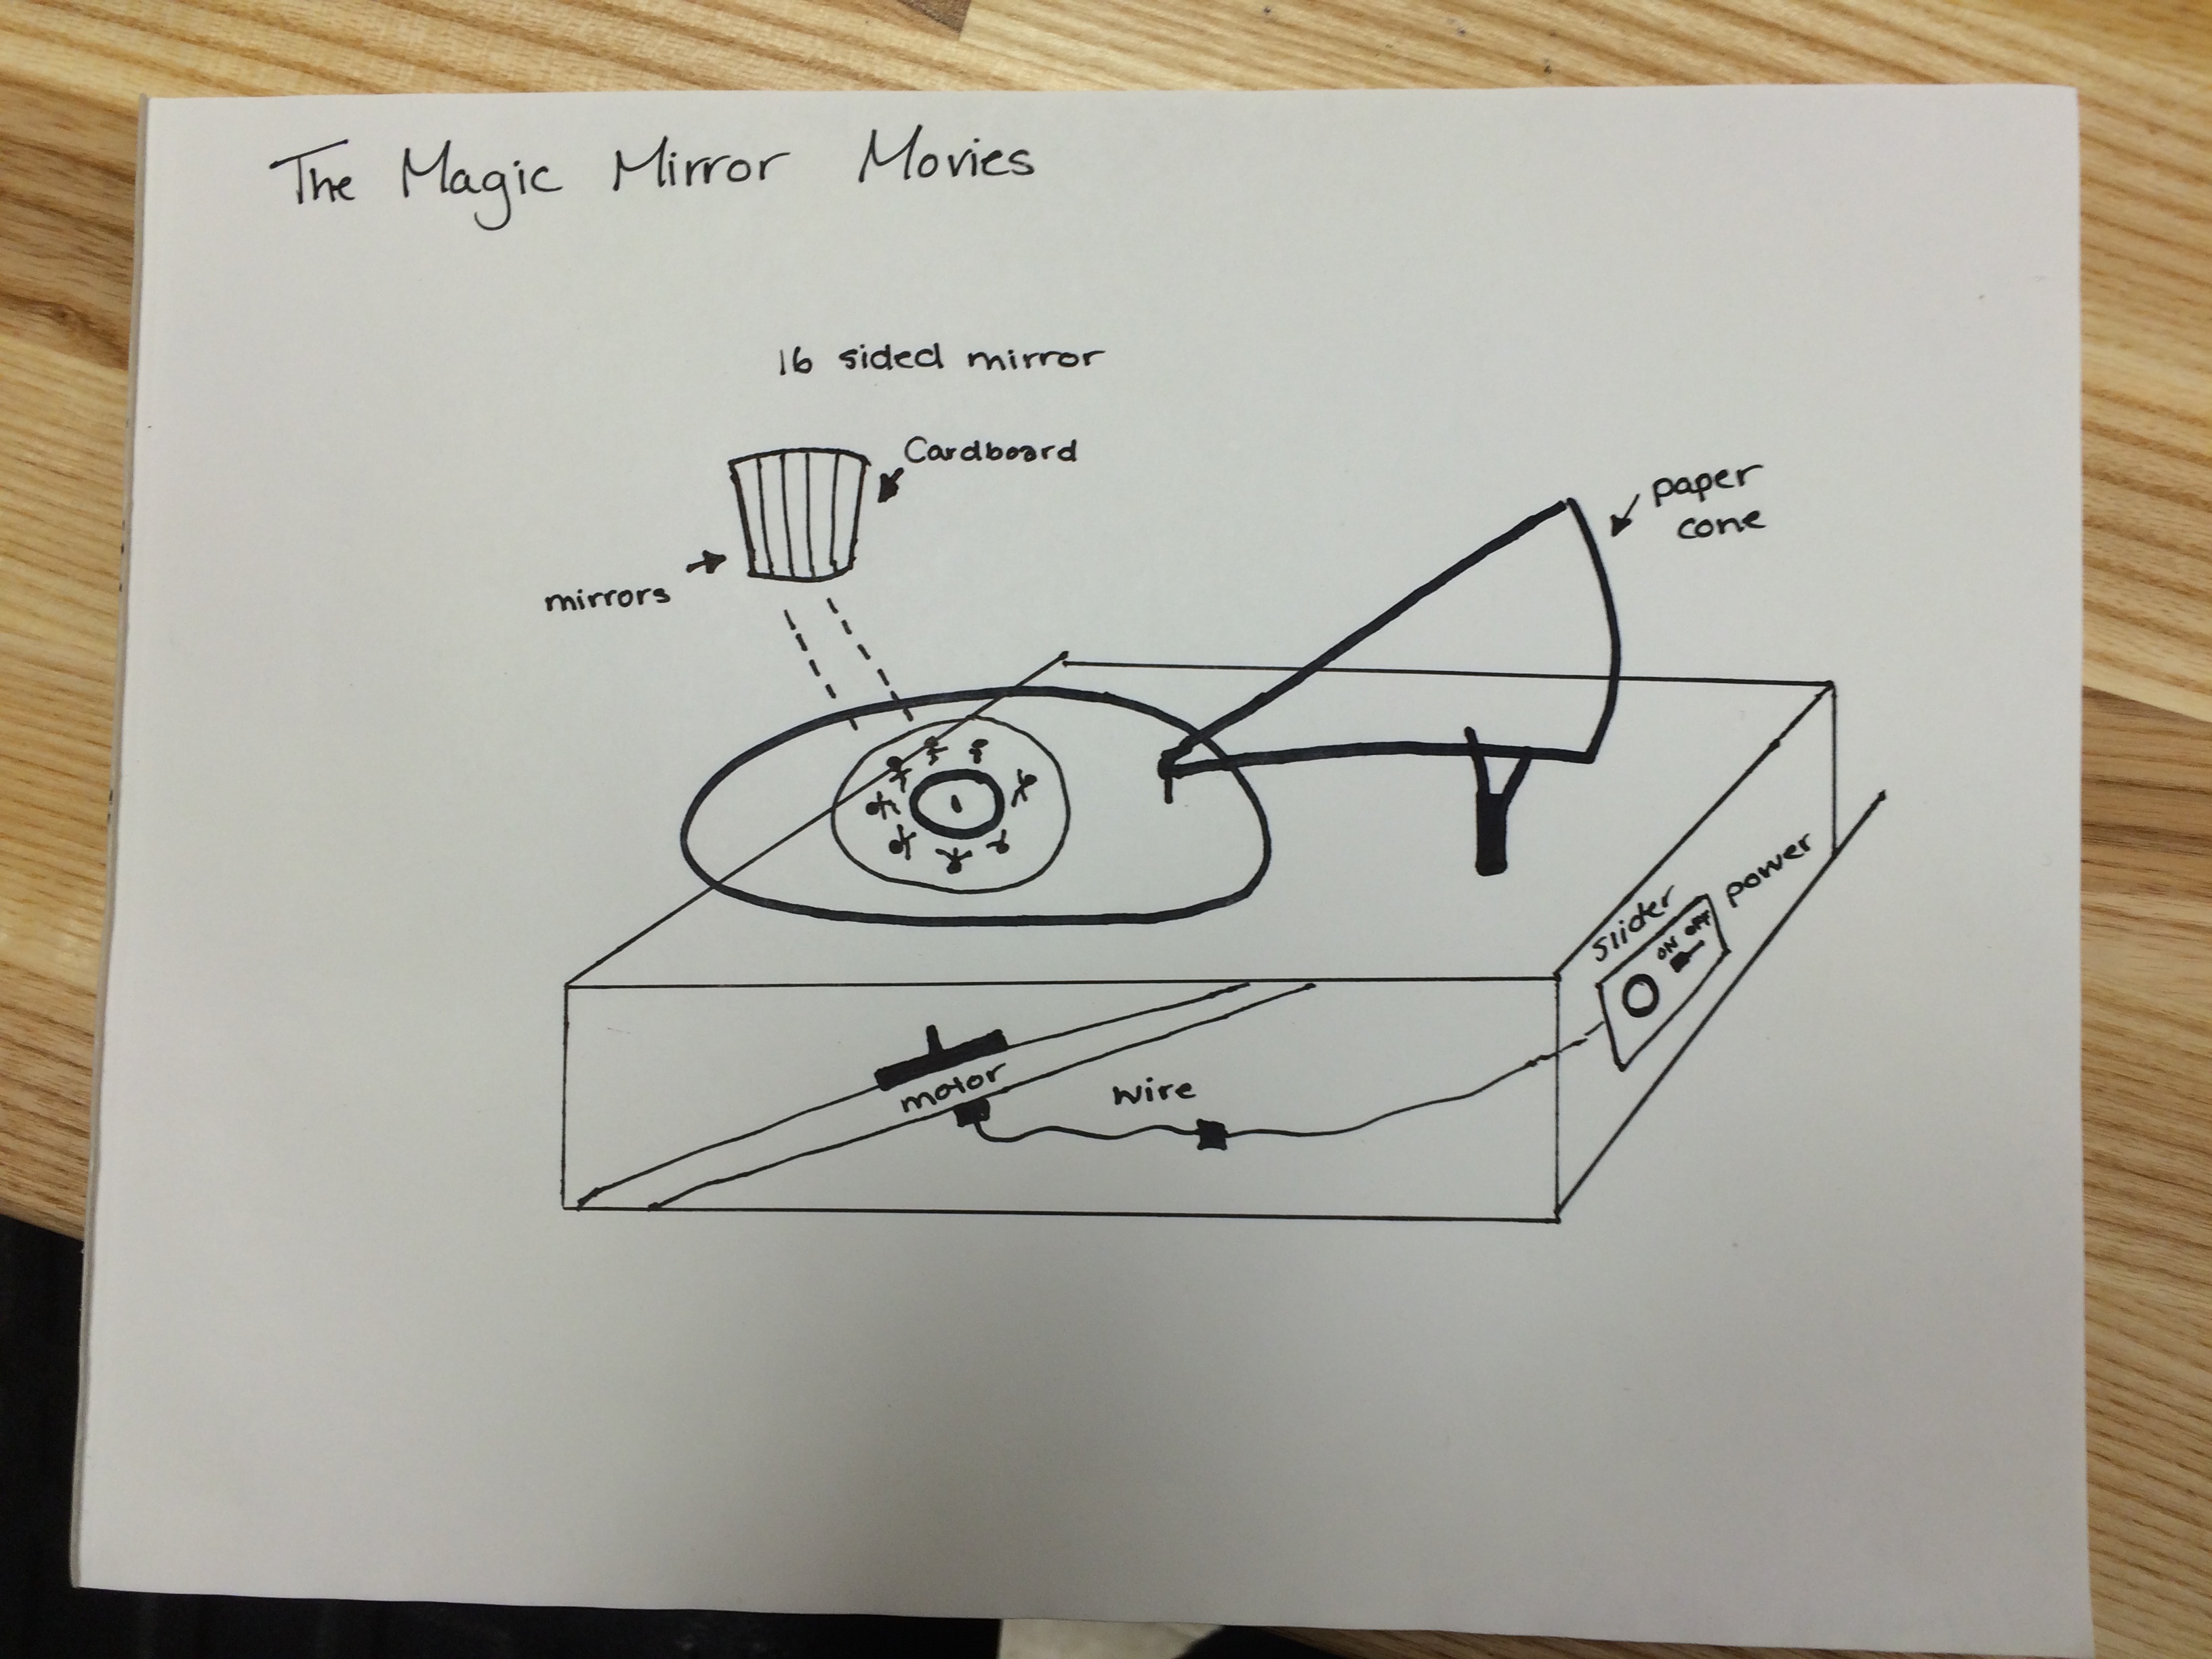 The Magic Mirror Movies
16 sided mirror
Cardboard
paper
cone
mirrors
slider
power
ON OFF
motor
wire